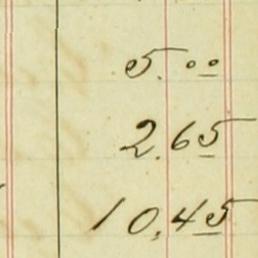 5.00
2.65
10.45